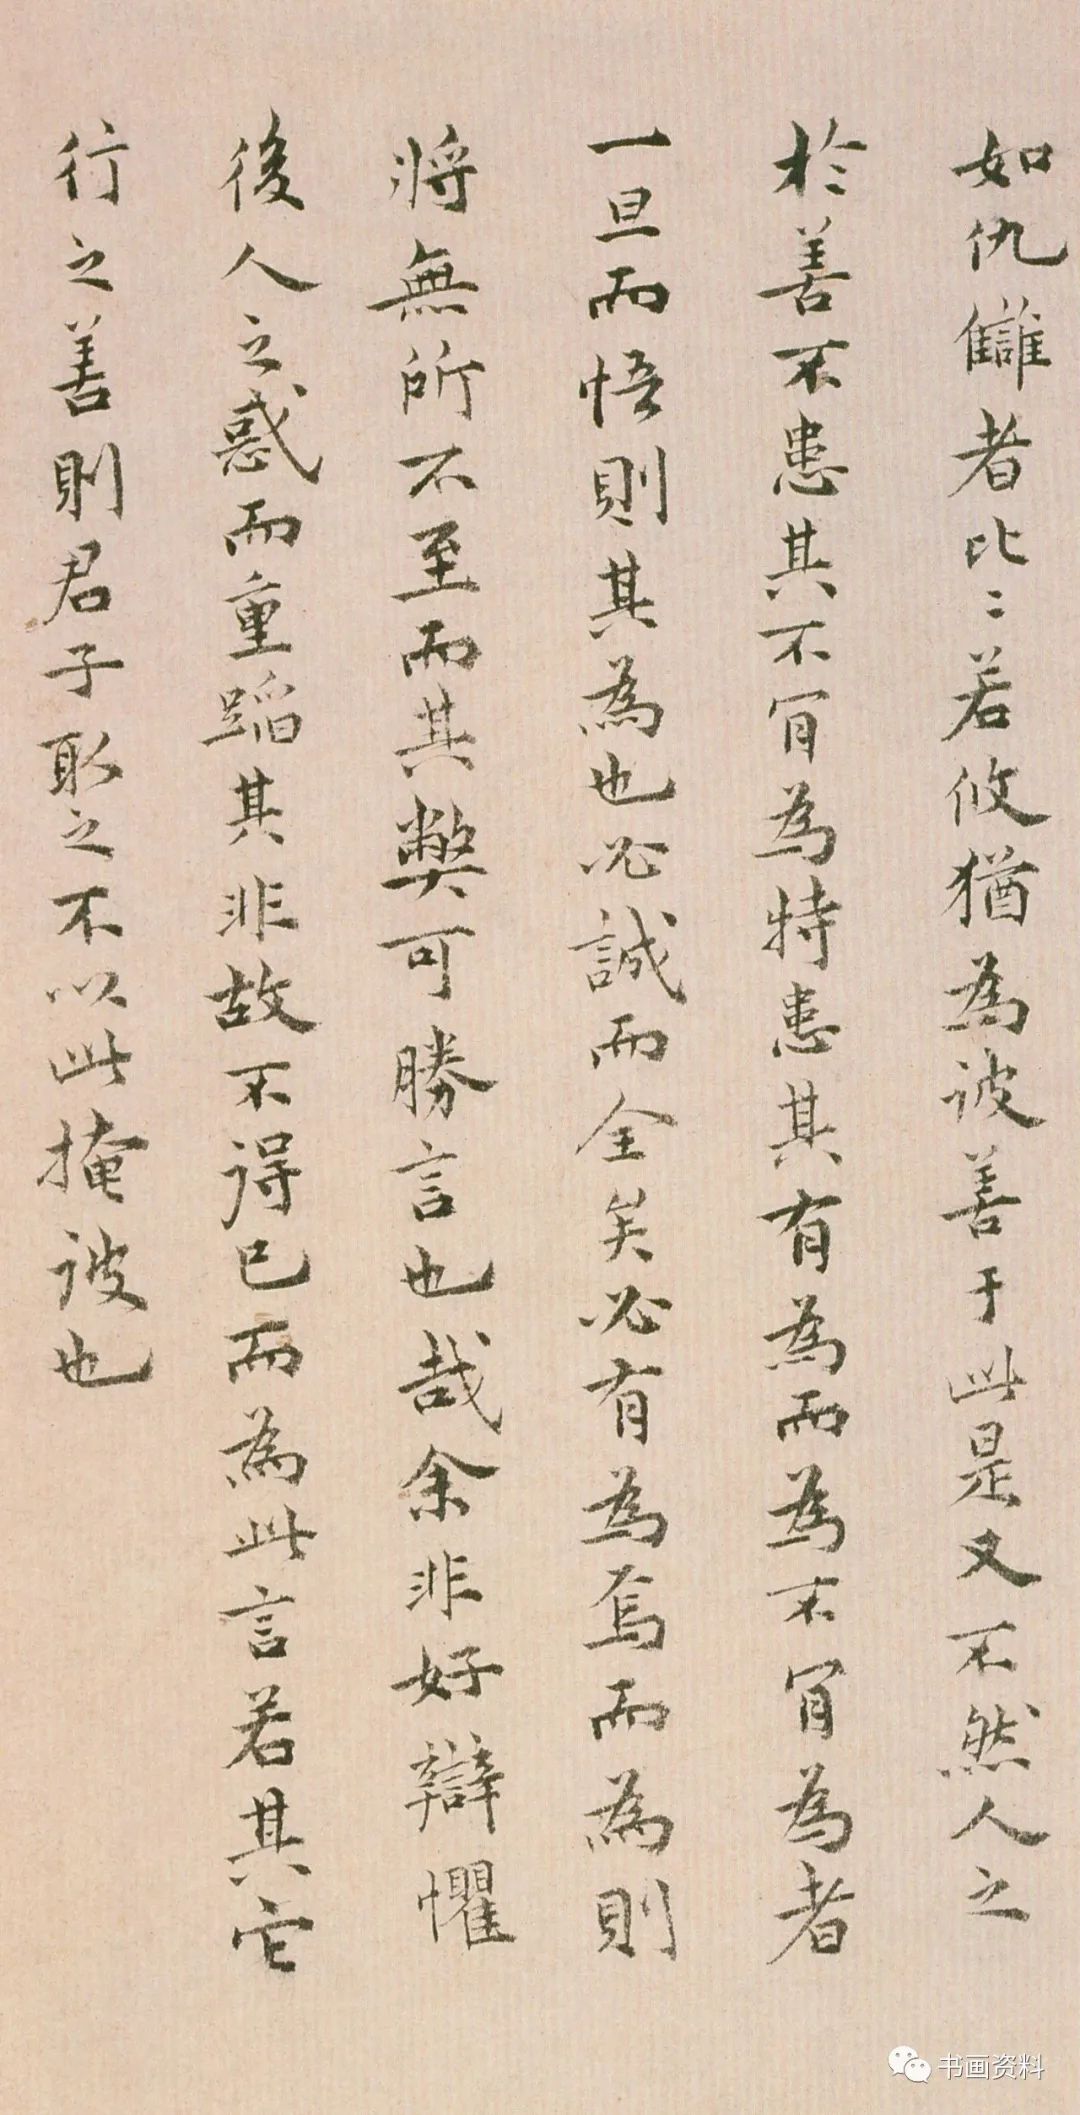 如仇讎者比〻若攸猶為詖善于此是又不然人之
於善不患其不肯為特患其有為而為不肯為者
一旦而悟則其為也必誠而全矣必有為焉而為則
將無所不至而其弊可勝言也哉余非好辯懼
後人之惑而重蹈其非故不得已而為此言若其它
行之善則君子取之不以此掩詖也
书画资料